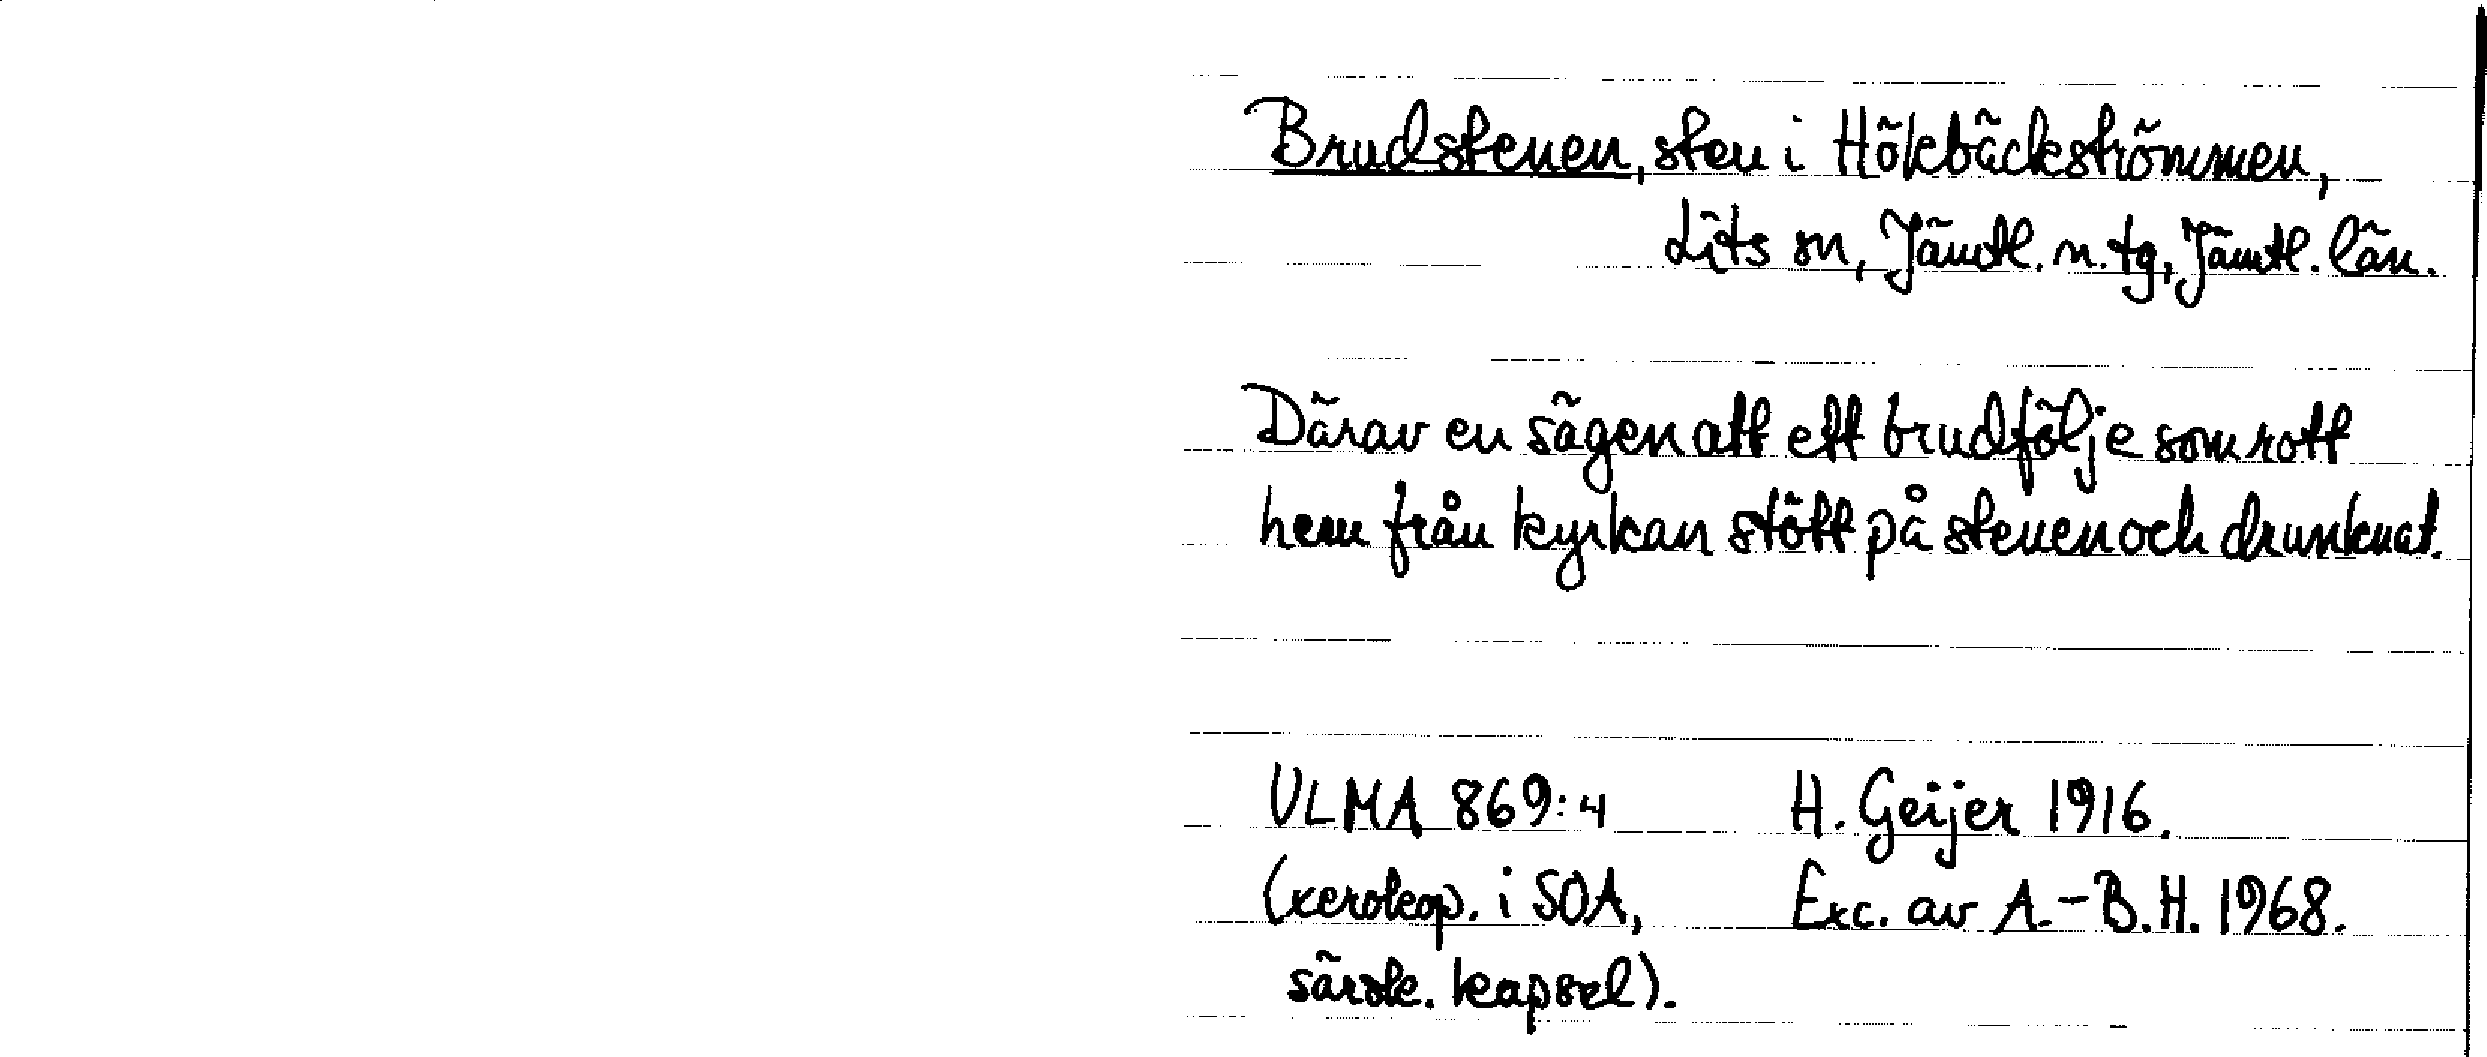 Brudstenen, sten i Hökbäckströmmen,
Lits sn, Jämtl. n. tg, Jämtl. län.
Därav en sägen att ett brudfölje som rott
hem från kyrkan stött på stenen och drunknat.
ULMA 869:4 H. Geijer 1916.
(xerokop. i SOA, Exc. av A.-B.H. 1968.
särsk. kapsel).